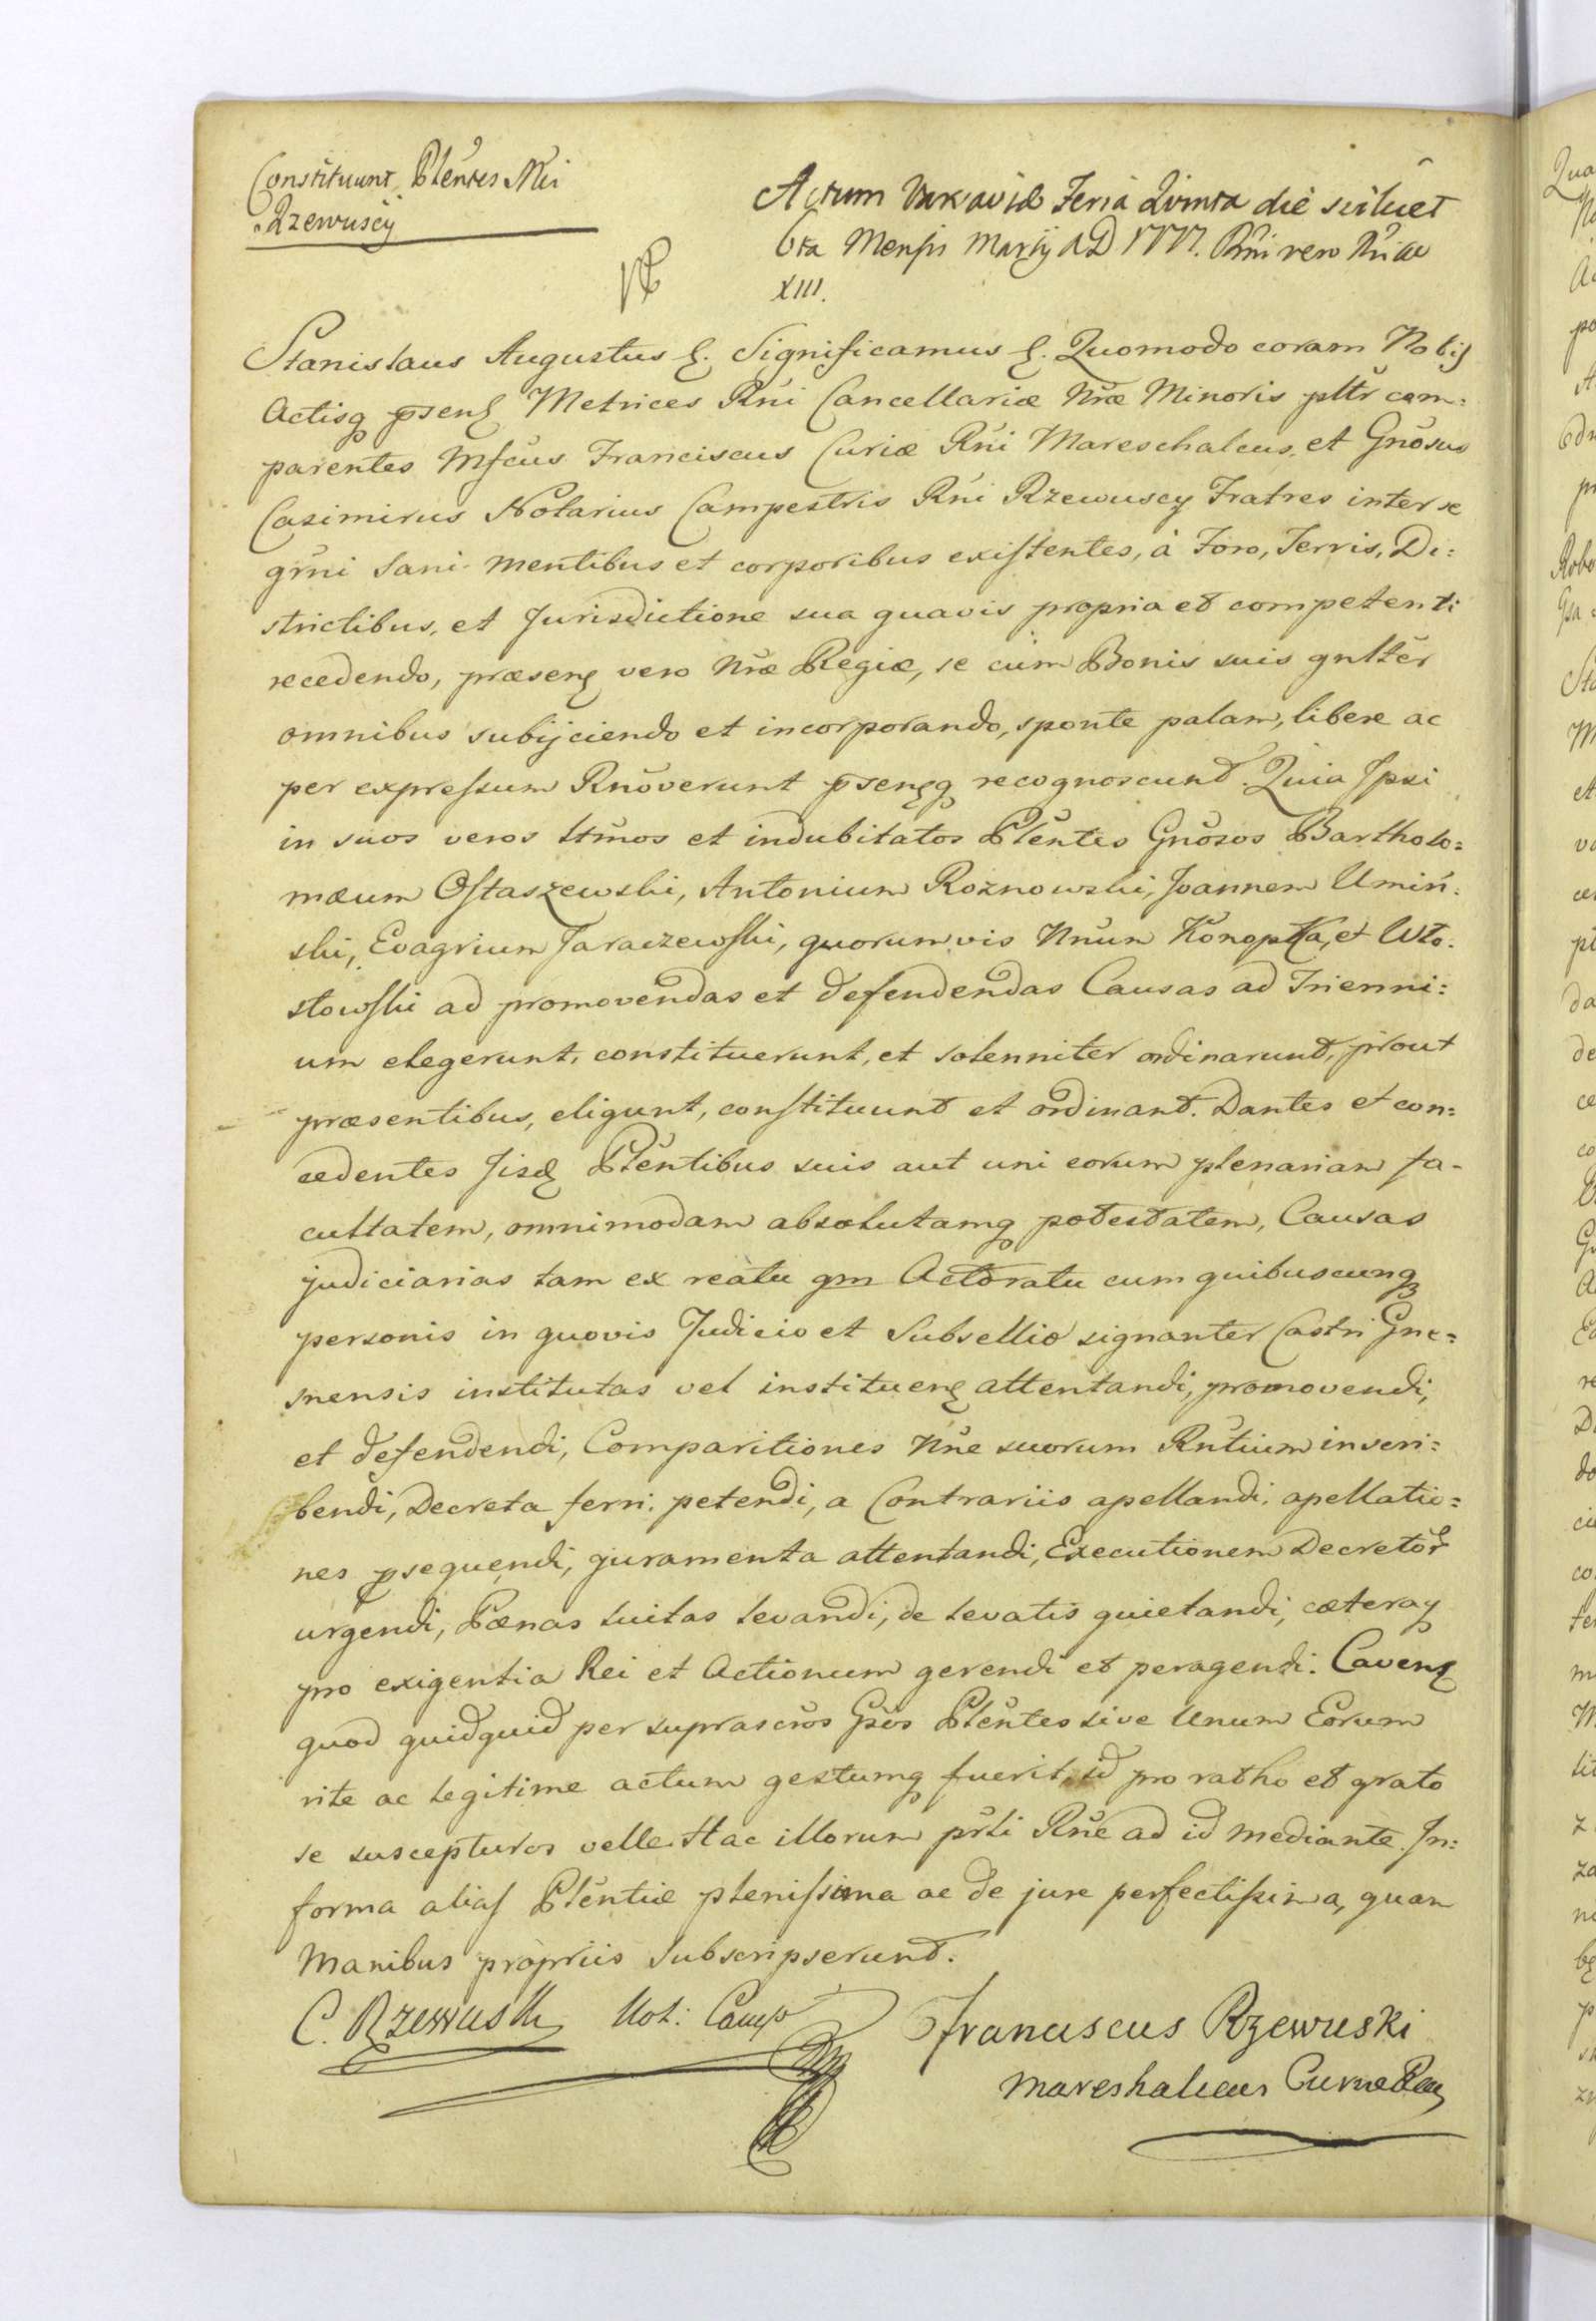 Constituunt Pleñtes Mci
Rzewuscÿ
Actum Varsaviæ Feria Quinta die scilicet
6ta Mensis Martij AD 1777. Rñi vero Ñri ac
XIII.
Stanislaus Augustus &. Significamus &. Quomodo coram Nobis
Actisq pseñ Metrices Rñi Cancellariæ Nræ Minoris pltr com=
parentes Mfcus Franciscus Curiæ Rñi Mareschalcus, et Gnosus
Casimirus Notarius Campestris Rñi Rzewuscy Fratres inter se
grni Sani mentibus et corporibus existentes, à Foro, Terris, Di=
strictibus, et Jurisdictione sua quavis propria et competenti
recedendo, præsen vero Nræ Regiæ, se cum Bonis suis gnlter
omnibus subijciendo et incorporando, sponte palam, libere ac
per expressum Rñoverunt psenq recognoscunt. Quia Ipsi
in suos veros lttmos et indubitatos Plentes Gnosos Bartholo=
mæum Ostaszewski, Antonium Roznowski, Joannem Umiń=
ski, Evagrium Taraczewski, quorumvis Nnum Konopka, et Wło=
stowski ad promovendas et defendendas Causas ad Trienni=
um elegerunt, constituerunt, et solenniter ordinarunt, prout
præsentibus, eligunt, constituunt et ordinant. Dantes et con=
cedentes Iisd Plentibus suis aut uni eorum plenariam fa-
cultatem, omnimodam absolutamq potestatem, Causas
judiciarias tam ex reatu qm Actoratu cum quibuscunq
personis in quovis Judicio et Subsellio signanter Castri Gne=
snensis institutas vel instituen attentandi, promovendi,
et defendendi, Comparitiones Nñe suorum Rntium inscri=
bendi, Decreta ferri petendi, a Contrariis apellandi, apellatio=
nes psequendi, juramenta attentandi, Executionem Decretor
urgendi, Pænas luitas levandi, de levatis quietandi, cæteraq
pro exigentia Rei et Actionum gerendi et peragendi. Caven
quod quidquid per suprascros Gsos Plentes sive Unum Eorum
rite ac legitime actum gestumq fuerit, id pro ratho et grato
se suscepturos velle. Hac illorum pñti Rñe ad id mediante. In=
forma alias Plentiæ plenissima ac de jure perfectissima, quam
Manibus propriis Subscripserunt.
C. Rzewuski Not: Camp
Franciscus Rzewuski
Mareshalcus Curiæ Reg